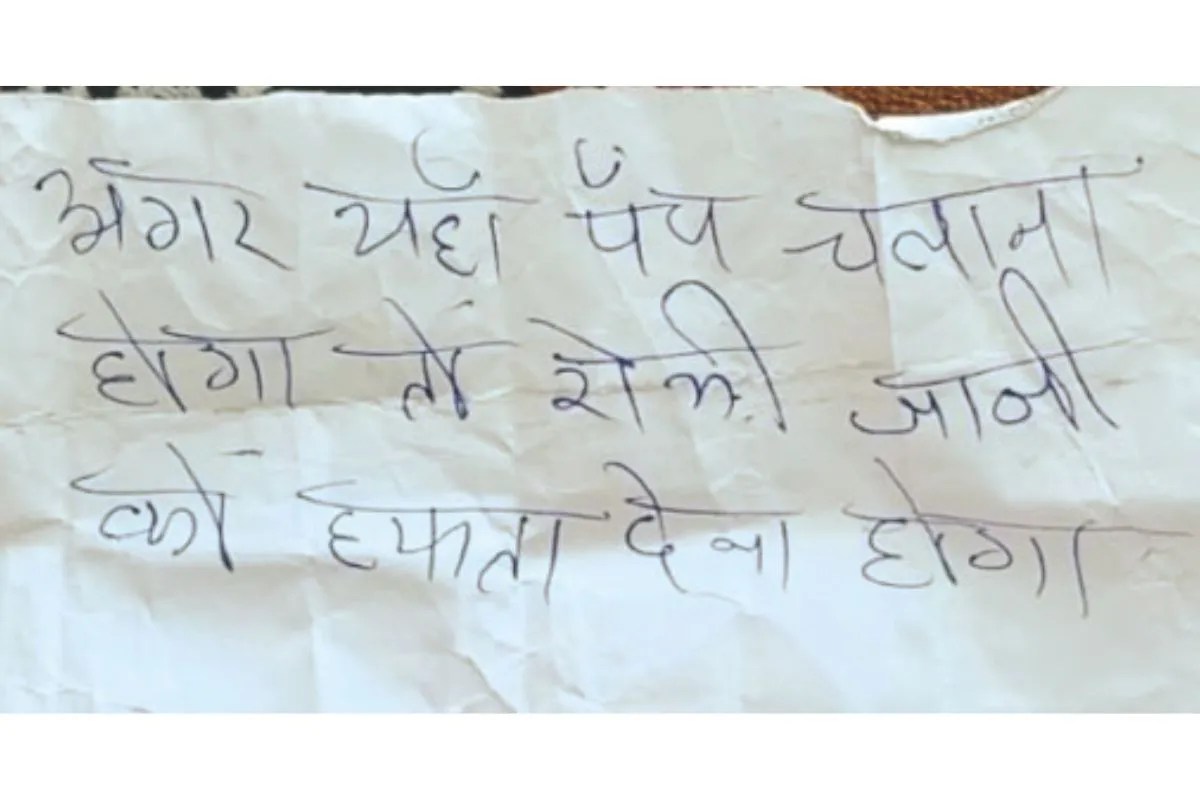 अगर यहाँ पँप चलाना
होगा तो रोमी जानी
को हफ्ता देना होगा